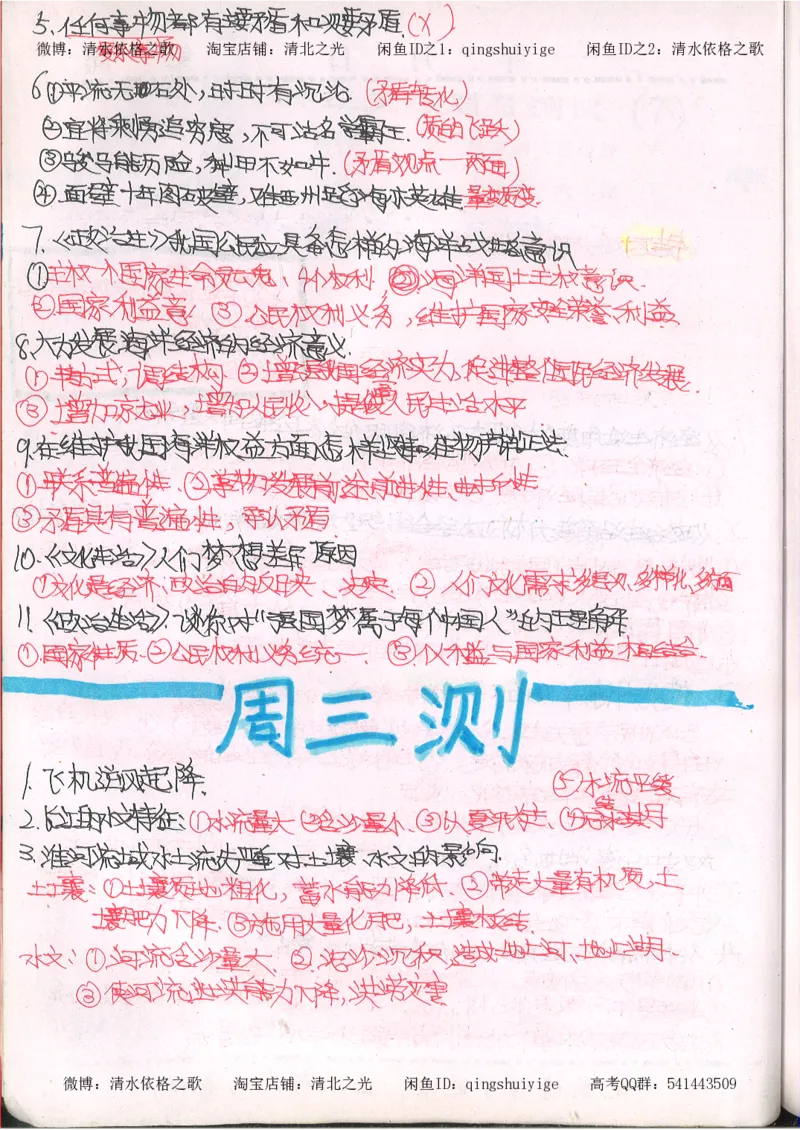 5.任何事物都有主要矛盾和次要矛盾(×)
复杂事物
微博：清水依格之歌 淘宝店铺：清北之光 闲鱼ID之1：qingshuiyige 闲鱼ID之2：清水依格之歌
6①平流无石处,时时有沉沦 (矛盾转化)
②宜将剩勇追穷寇,不可沽名学霸王.(质的飞跃)
③骏马能历险,犁田不如牛.(矛盾观点一两面)
④.面壁十年图破壁,难酬蹈海亦英雄 量变质变.
7.《政治生活》我国公民应具备怎样的海洋战略意识
①主权.个国家生命灵魂、4个权利 ②海洋国土主权意识.
②国家利益意 ③公民权利义务,维护国家安全荣誉利益
8.大力发展海洋经济的经济意义.
①转方式,调结构 ②增强我国经济实力,促进整个国民经济发展.
③增加就业,增加人民收入,提高人民生活水平
9.在维护我国海洋权益方面怎样坚持唯物辩证法.
①联系普遍性.②事物发展前途前进性、曲折性
③矛盾具有普遍性,承认矛盾.
10.《文化生活》人们梦想差异原因
①文化是经济、政治的反映、决定. ②人们文化需求多层次,多样化,多方面
11.《政治生活》,谈你对"强国梦属于每个中国人"的理解
①.国家性质.②公民权利义务统一. ③个人利益与国家利益相结合.
周三测
1.飞机逆风起降.
⑤水流平缓
2.长江的水文特征:①水流量大 ②含沙量小.③以夏汛为主、④无结冰期
3.淮河流域水土流失严重对土壤、水文的影响.
土壤:①土壤质地粗化,蓄水能力降低.②带走大量有机质,土
壤肥力下降.③施用大量化肥,土壤板结.
水文:①河流含沙量大、②.泥沙沉积,造成地上河、地上湖.
③使河流泄洪能力下降,洪涝灾害
微博：清水依格之歌 淘宝店铺：清北之光 闲鱼ID：qingshuiyige 高考QQ群：541443509